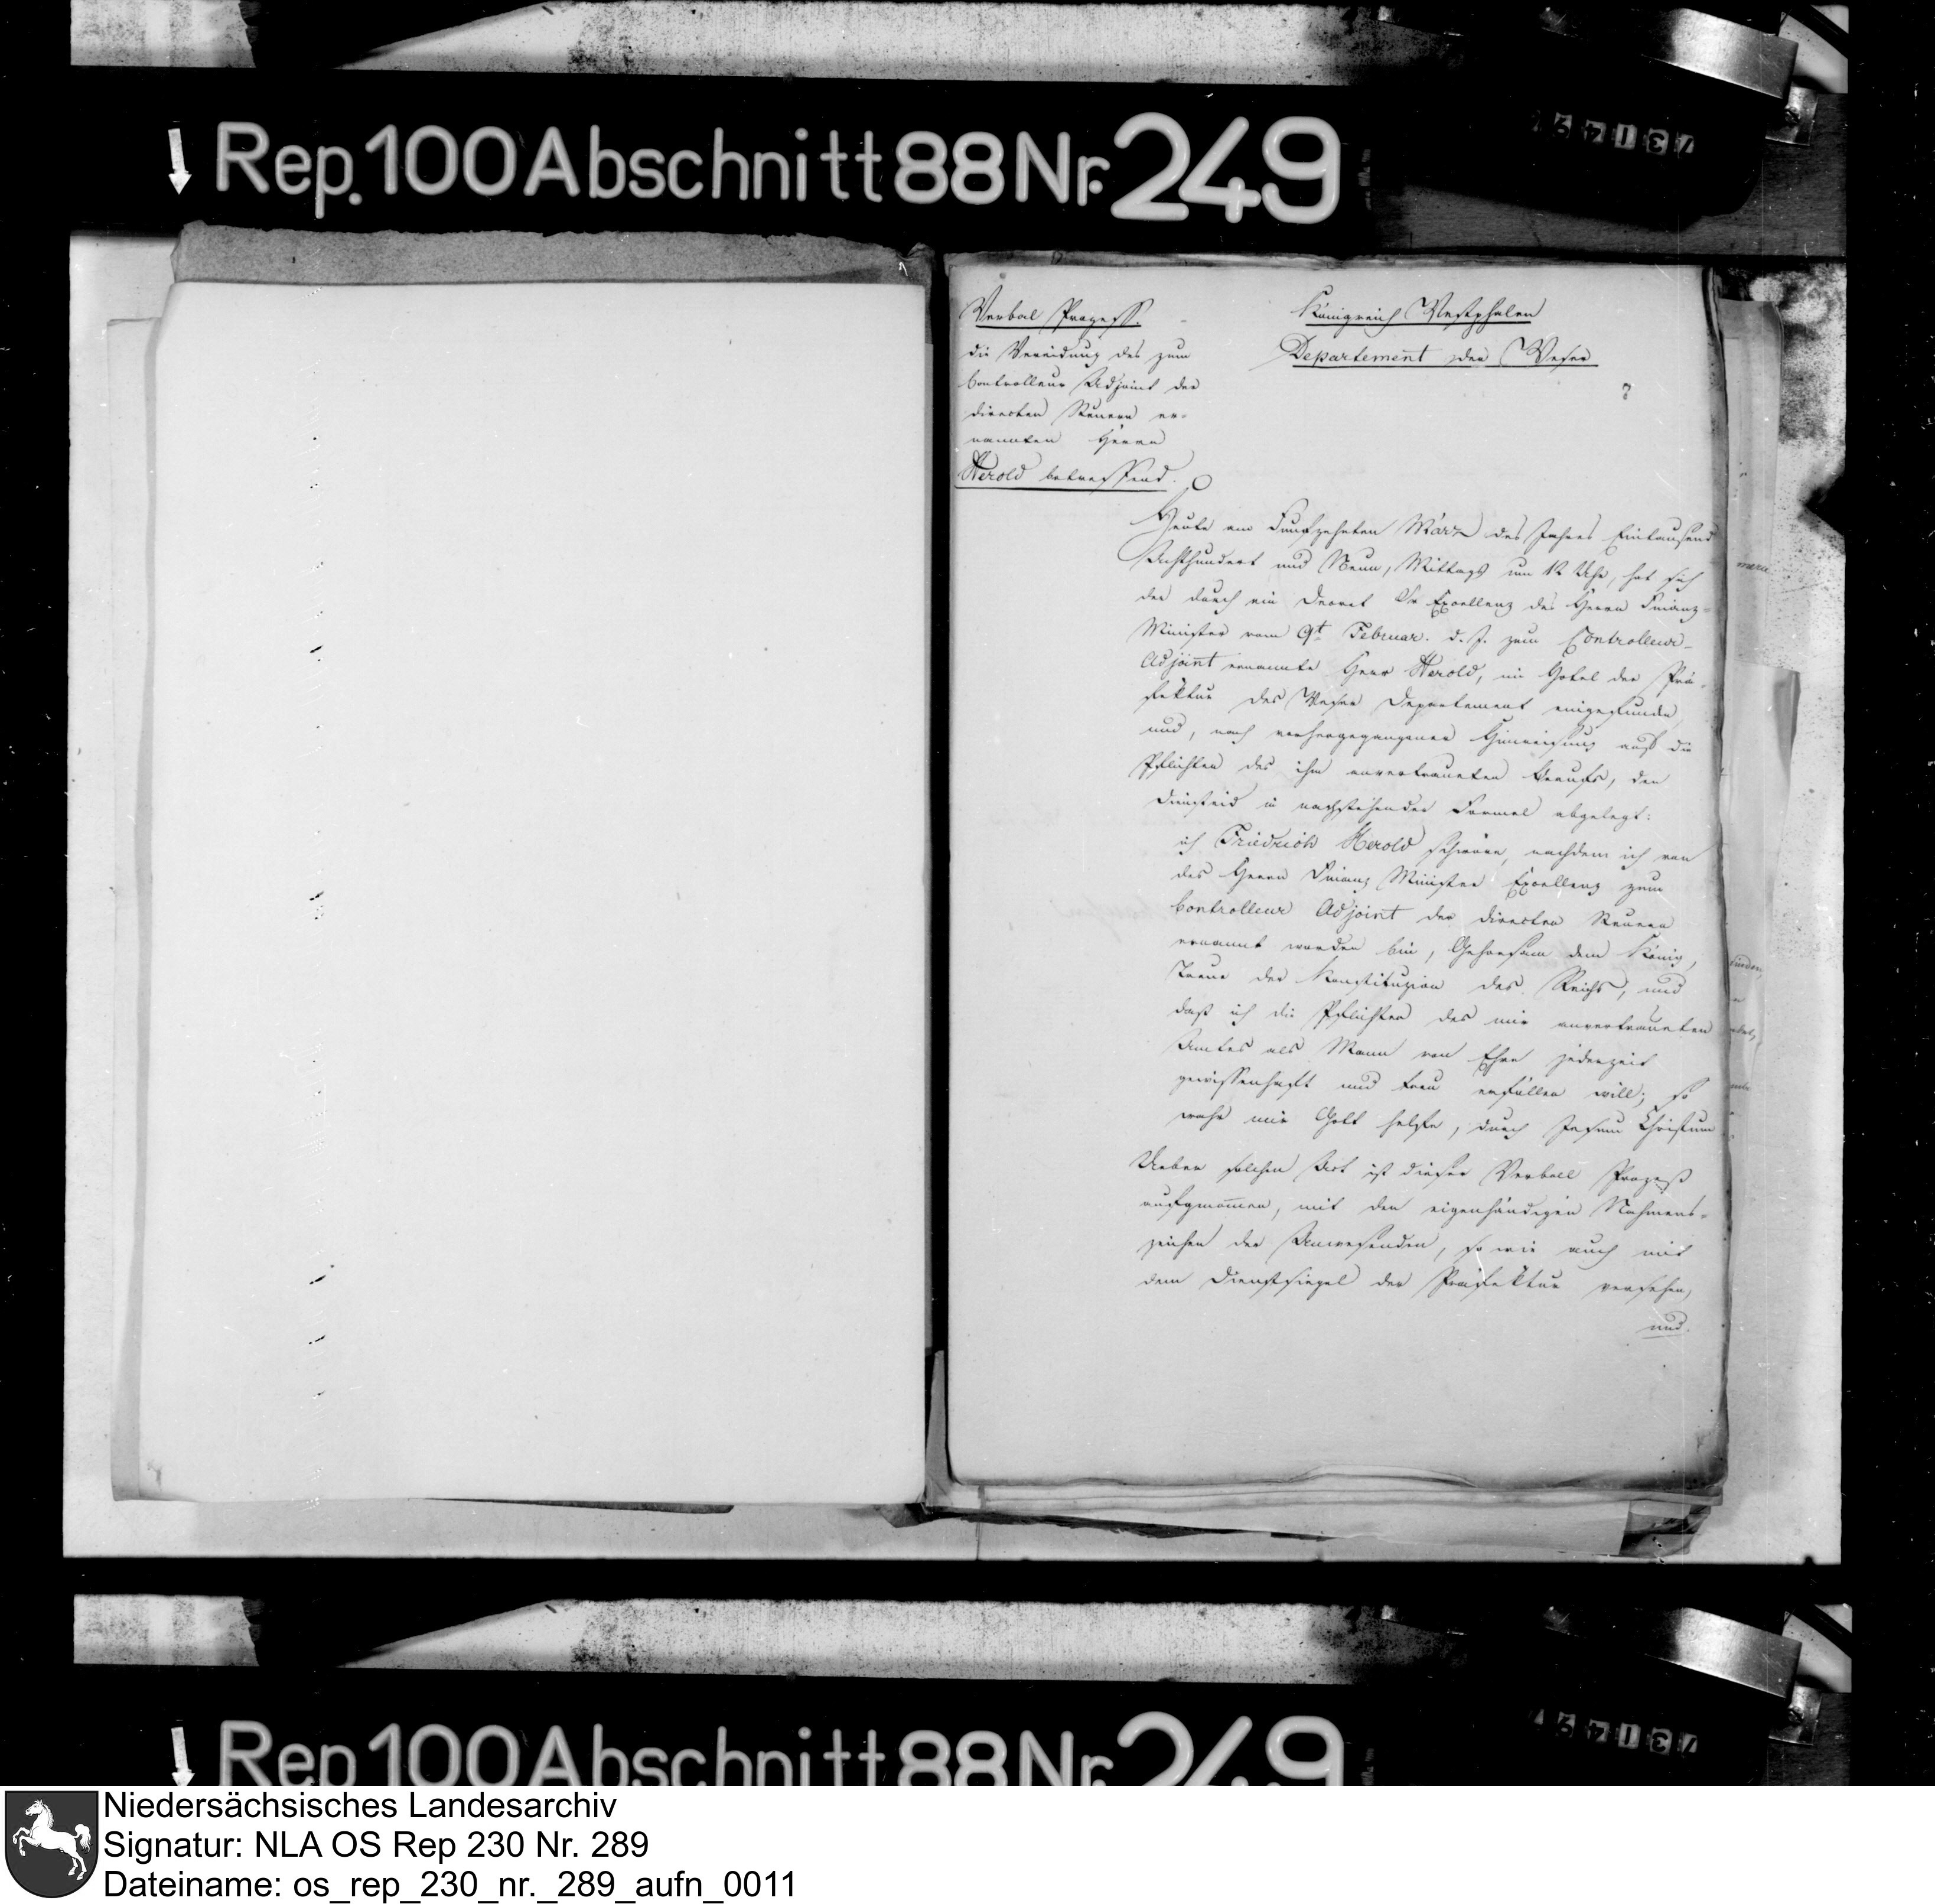 Rep. 100 Abschnitt 88 Nr. 249
Verbal Prozess.
die Vereidung des zum
Controlleur Adjoint der
directen Steuern er-
nannten Herrn
Herold betreffend.
Königreich Westphalen
Departement der Weser
Heute am Funfzehnten März des Jahres Eintausend
Achthundert und Neun, Mittags um 12 Uhr, hat sich
der durch ein Decret Sr Excellenz des Herrn Finanz-
Minister vom 9t Februar. d. J. zum Controlleur-
Adjoint ernannte Herr Herold, im Hotel der Prä-
fektur des Weser Departement eingefunden
und, nach vorhergegangener Hinweisung auf die
Pflichten des ihm anvertraueten Berufs, den
Diensteid in nachstehender Formel abgelegt:
ich Friedrich Herold schwöre, nachdem ich von
des Herrn Finanz Minister Excellenz zum
Controlleur Adjoint der directen Steuern
ernannt worden bin, Gehorsam dem König,
Treue der Konstituzion des Reichs, und
daß ich die Pflichten des mir anvertraueten
Amtes als Mann von Ehre jederzeit
gewissenhaft und treu erfüllen will; so
wahr mir Gott helfe, durch Jesum Christum
Ueber solchen Act ist dieser Verball Prozeß
aufgenom̄en, mit den eigenhändigen Nahmens-
zeichen der Anwesenden, so wie auch mit
dem Dienstsiegel der Präfektur versehen,
und.
Rep. 100 Abschnitt 88 Nr. 249
Niedersächsisches Landesarchiv
Signatur: NLA OS Rep 230 Nr. 289
Dateiname: os_rep_230_nr._289_aufn_0011